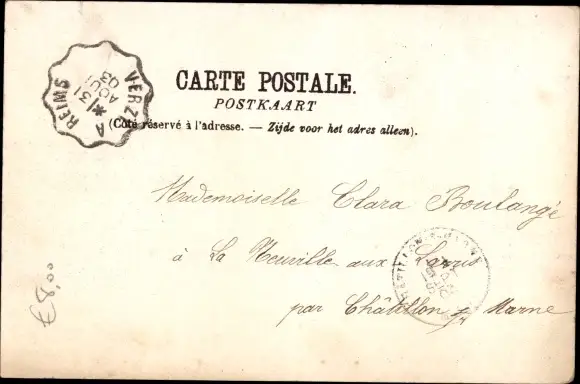 VERZY A REIMS
31
AOUT
03
CARTE POSTALE.
POSTKAART
(Côté réservé à l'adresse. — Zijde voor het adres alleen).
Mademoiselle Clara Boulangé
à La Neuville aux Larris
par Châtillon s/ Marne
€8,00